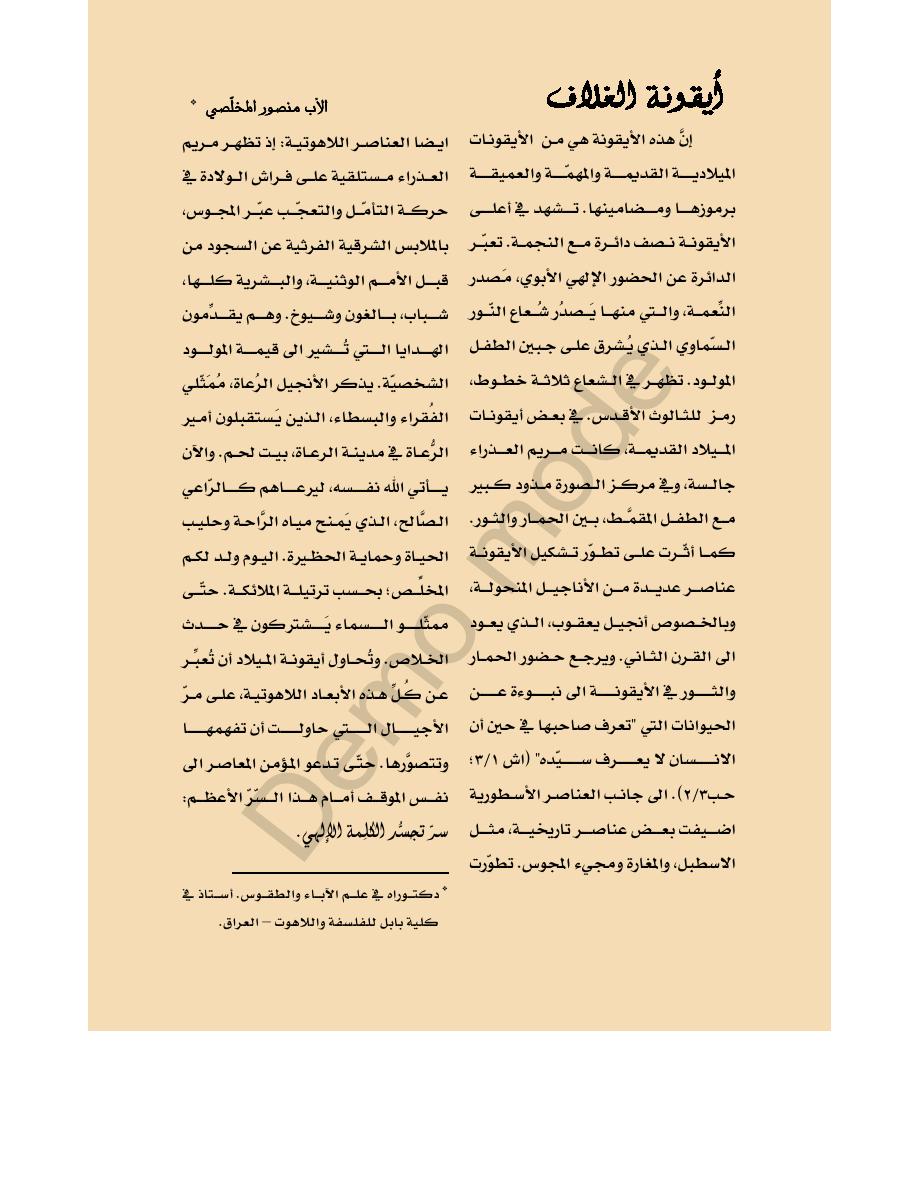 أيقونة الغلاف
الأب منصور المخلّصي *
إنَّ هذه الأيقونة هي من الأيقونات
الميلادية القديمة والمهمّة والعميقة
برموزها ومضامينها. تشهد في أعلى
الأيقونة نصف دائرة مع النجمة. تعبّر
الدائرة عن الحضور الإلهي الأبوي، مَصدر
النِّعمة، والتي منها يَصدُر شُعاع النّور
السّماوي الذي يُشرق على جبين الطفل
المولود. تظهر في الشعاع ثلاثة خطوط،
رمز للثالوث الأقدس. في بعض أيقونات
الميلاد القديمة، كانت مريم العذراء
جالسة، وفي مركز الصورة مذود كبير
مع الطفل المقمَّط، بين الحمار والثور.
كما أثّرت على تطوّر تشكيل الأيقونة
عناصر عديدة من الأناجيل المنحولة،
وبالخصوص أنجيل يعقوب، الذي يعود
الى القرن الثاني. ويرجع حضور الحمار
والثور في الأيقونة الى نبوءة عن
الحيوانات التي "تعرف صاحبها في حين أن
الانسان لا يعرف سيّده" (اش ٣/١؛
حب٢/٣). الى جانب العناصر الأسطورية
اضيفت بعض عناصر تاريخية، مثل
الاسطبل، والمغارة ومجيء المجوس. تطوّرت
ايضا العناصر اللاهوتية: إذ تظهر مريم
العذراء مستلقية على فراش الولادة في
حركة التأمّل والتعجّب عبّر المجوس،
بالملابس الشرقية الفرثية عن السجود من
قبل الأمم الوثنية، والبشرية كلها،
شباب، بالغون وشيوخ. وهم يقدِّمون
الهدايا التي تُشير الى قيمة المولود
الشخصيّة. يذكر الأنجيل الرُعاة، مُمَثّلي
الفُقراء والبسطاء، الذين يَستقبلون أمير
الرُّعاة في مدينة الرعاة، بيت لحم. والآن
يأتي الله نفسه، ليرعاهم كالرّاعي
الصَّالح، الذي يَمنح مياه الرَّاحة وحليب
الحياة وحماية الحظيرة. اليوم ولد لكم
المخلِّص؛ بحسب ترتيلة الملائكة. حتّى
ممثّلو السماء يَشتركون في حدث
الخلاص. وتُحاول أيقونة الميلاد أن تُعبِّر
عن كُلِّ هذه الأبعاد اللاهوتية، على مرّ
الأجيال التي حاولت أن تفهمها
وتتصوَّرها. حتّى تدعو المؤمن المعاصر الى
نفس الموقف أمام هذا السّرّ الأعظم:
سرّ تجسُّد الكلمة الإلهي.
* دكتوراه في علم الآباء والطقوس. أستاذ في
كلية بابل للفلسفة واللاهوت – العراق.
Demo mode